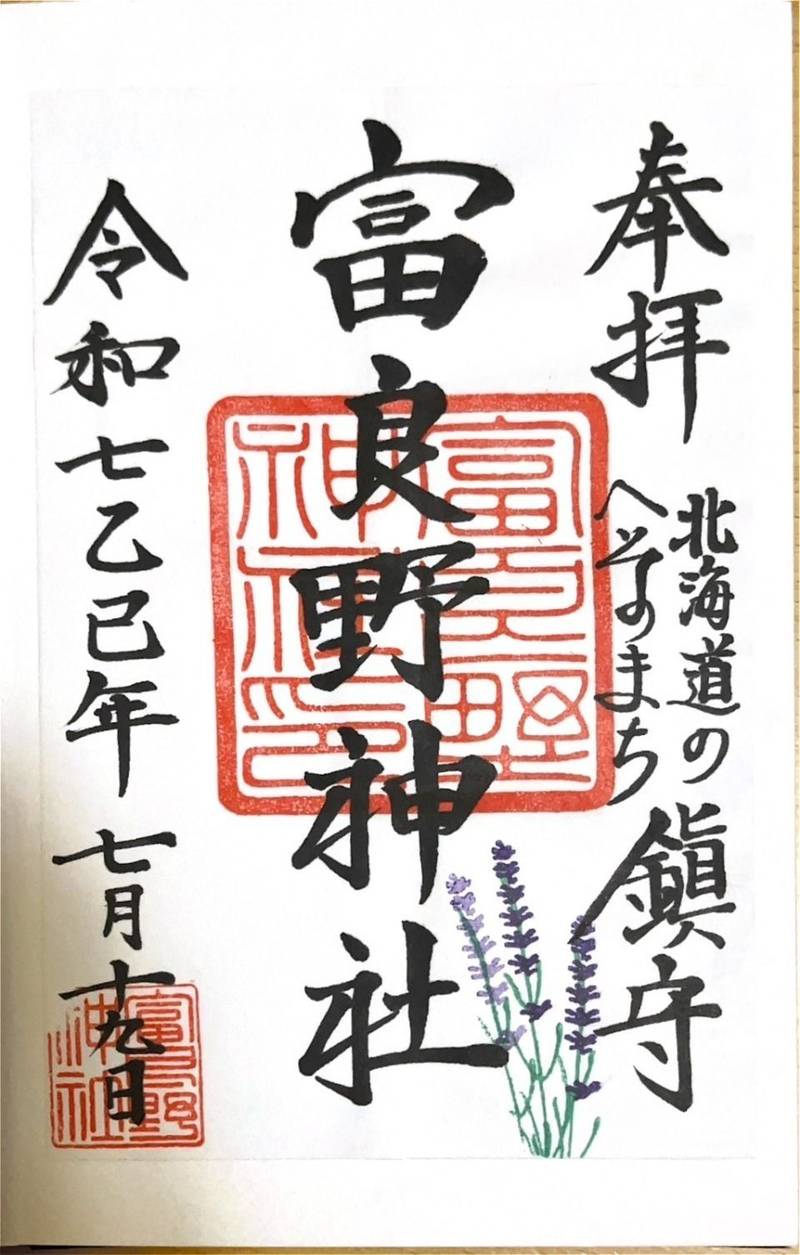 奉拝
北海道の
へそのまち
鎮守
富良野神社
富良野神社印
令和七乙巳年 七月十九日
富良野神社